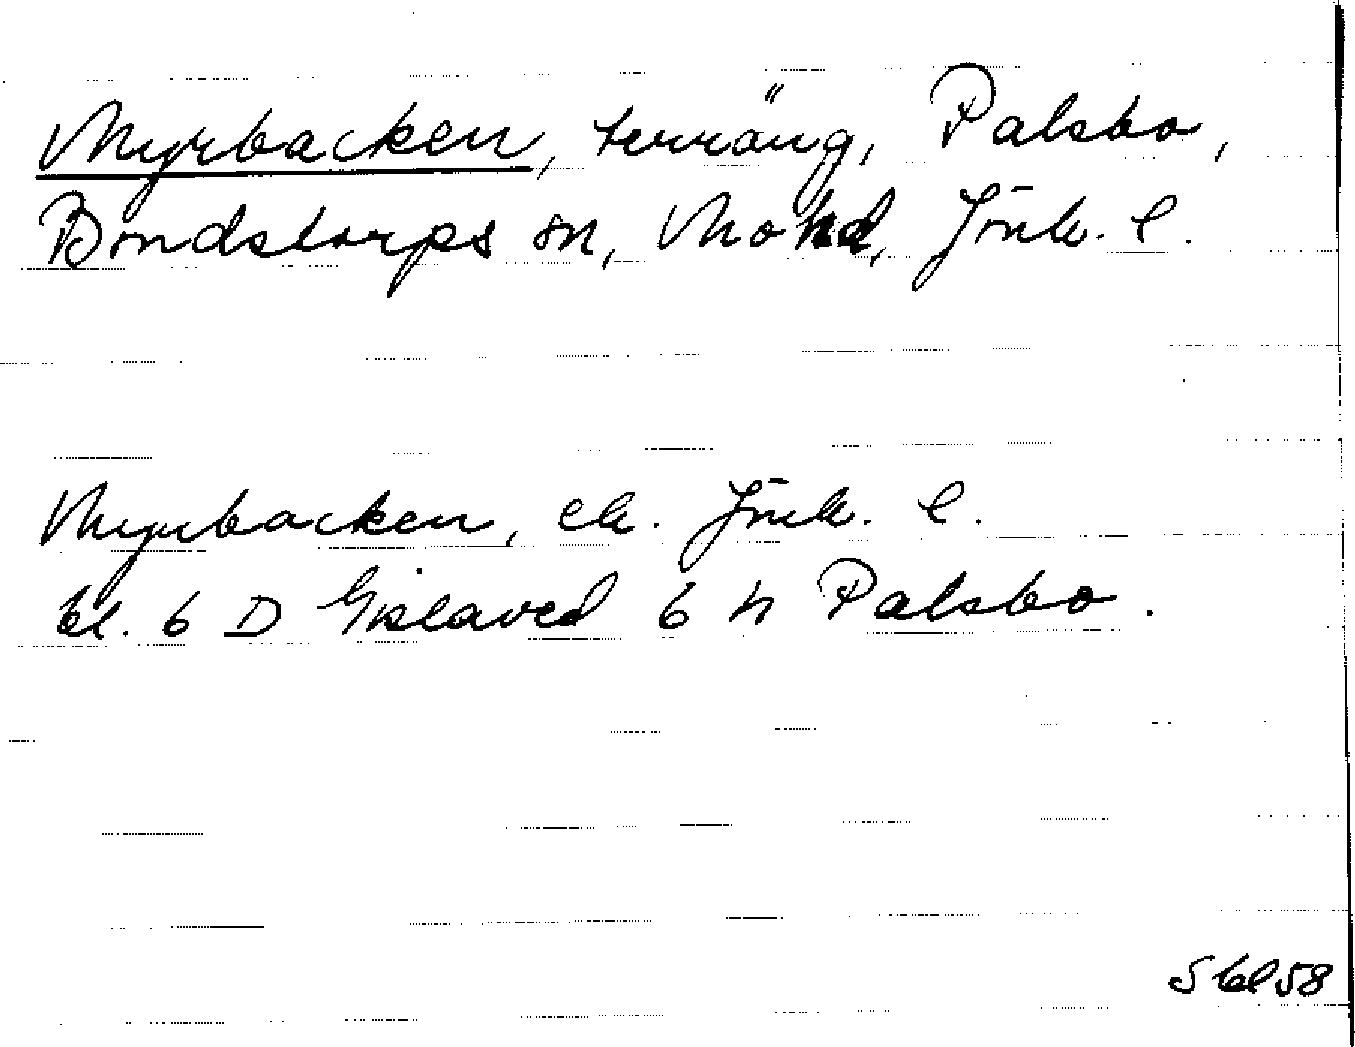 Myrbacken, terräng, Palsbo,
Bondstorps sn, Mo hd, Jönk. l.
Myrbacken, ek. Jönk. l.
bl. 6 D Gislaved 6 h Palsbo.
S bl 58